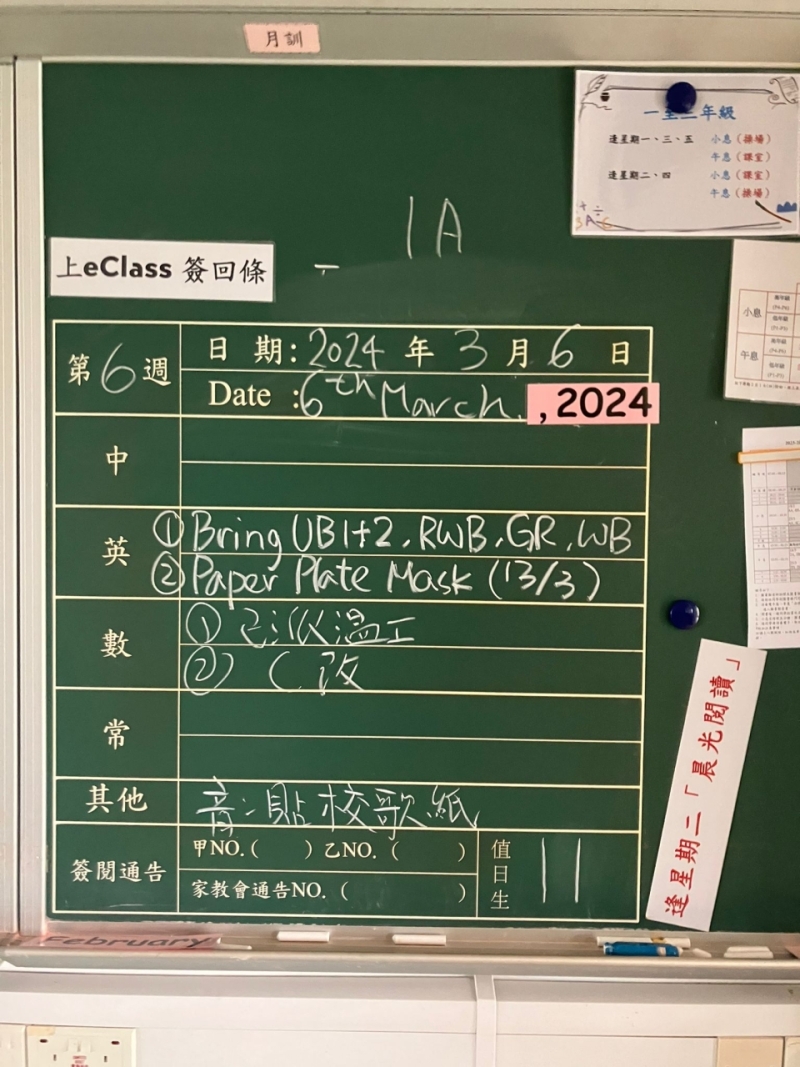 月訓
一至二年級
逢星期一、三、五 小息（操場）
午息（課室）
逢星期二、四 小息（課室）
午息（操場）
1A
上eClass 簽回條
小息
午息
第6週
日期：2024年3月6日
Date :6th March. , 2024
中
英
① Bring UB1+2, RWB, GR, WB
② Paper Plate Mask (13/3)
數
①
② 改
常
其他
音：貼校歌紙
簽閱通告
甲NO.( ) 乙NO. ( )
家教會通告NO. ( )
值日生 11
逢星期二「晨光閱讀」
February